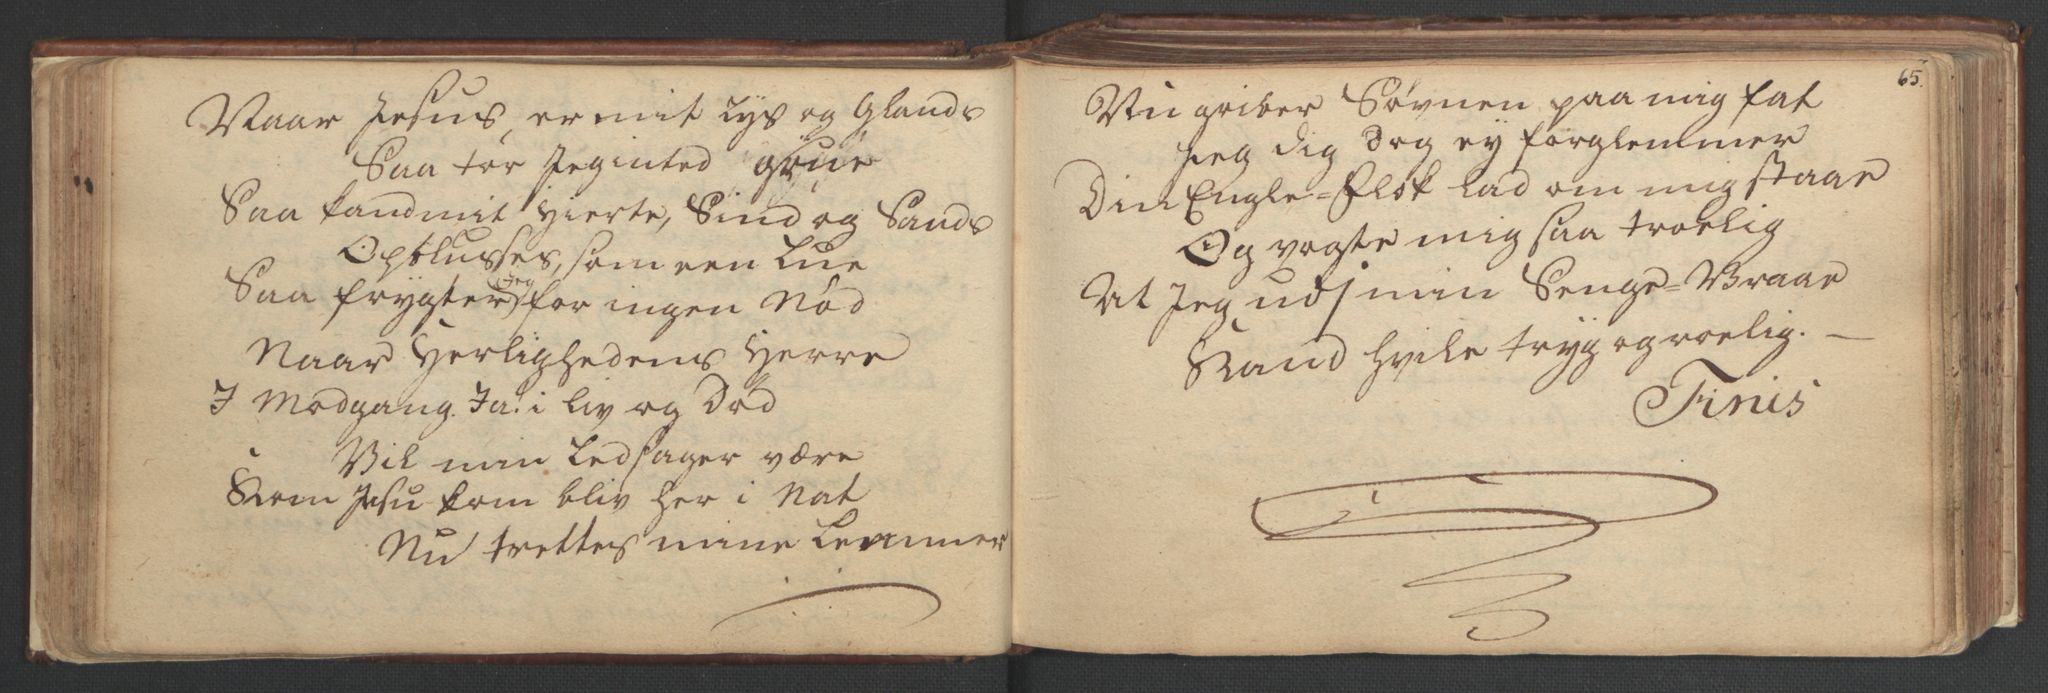 Naar Jesus, er mit Lys og Glands
Saa tør Jeg inted grue
Saa kand mit Hierte, Sind og Sands
Opblusses, som een Lue
Saa frygter Jeg for ingen Nød
Naar Herlighedens Herre
J Modgang. Ja! i liv og Død
Vil min Ledsager være
Kom Jesu kom bliv her i Nat
Nu trettes mine Lemmer
65.
Nu griber Søvnen paa mig fat
Jeg dig dog ey forglemmer
Din Engle=Flok lad om mig staae
Og vogte mig saa troelig
At Jeg udj min Senge=Vraae
Kand hvile tryg og roelig. —
Finis